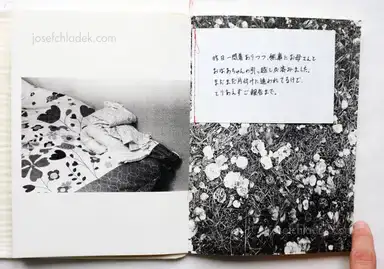 josefchladek.com
昨日一悶着ありつつ、無事にお母さんと
おばあちゃんの引っ越しが済みました。
まだまだ片付けに追われてるけど、
とりあえずご報告まで。
josefchladek.com